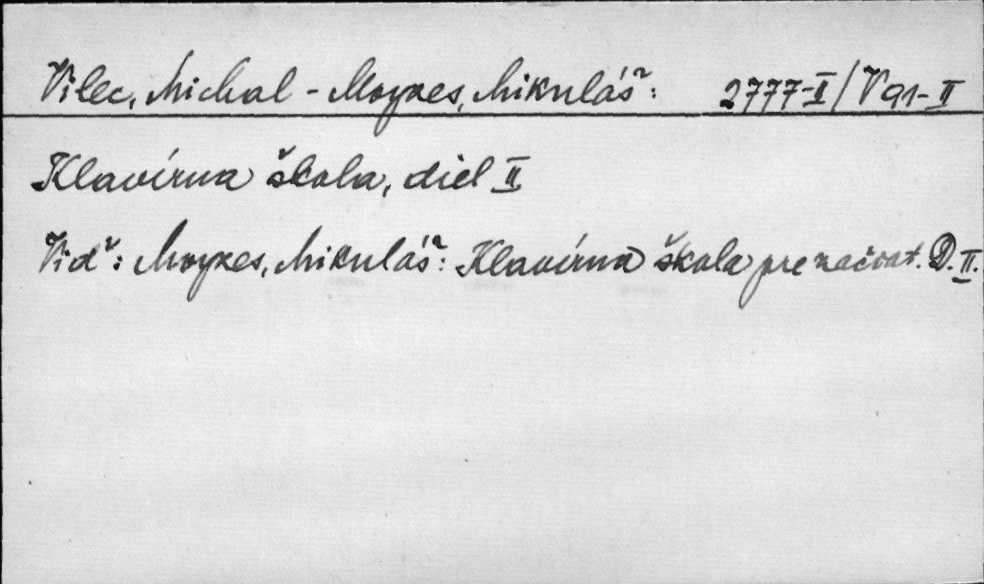 Vilec, Michal - Moyzes, Mikuláš: 2777-II/V91-II
Klavírna škola, diel II
Viď: Moyzes, Mikuláš: Klavírna škola pre začiat. D. II.